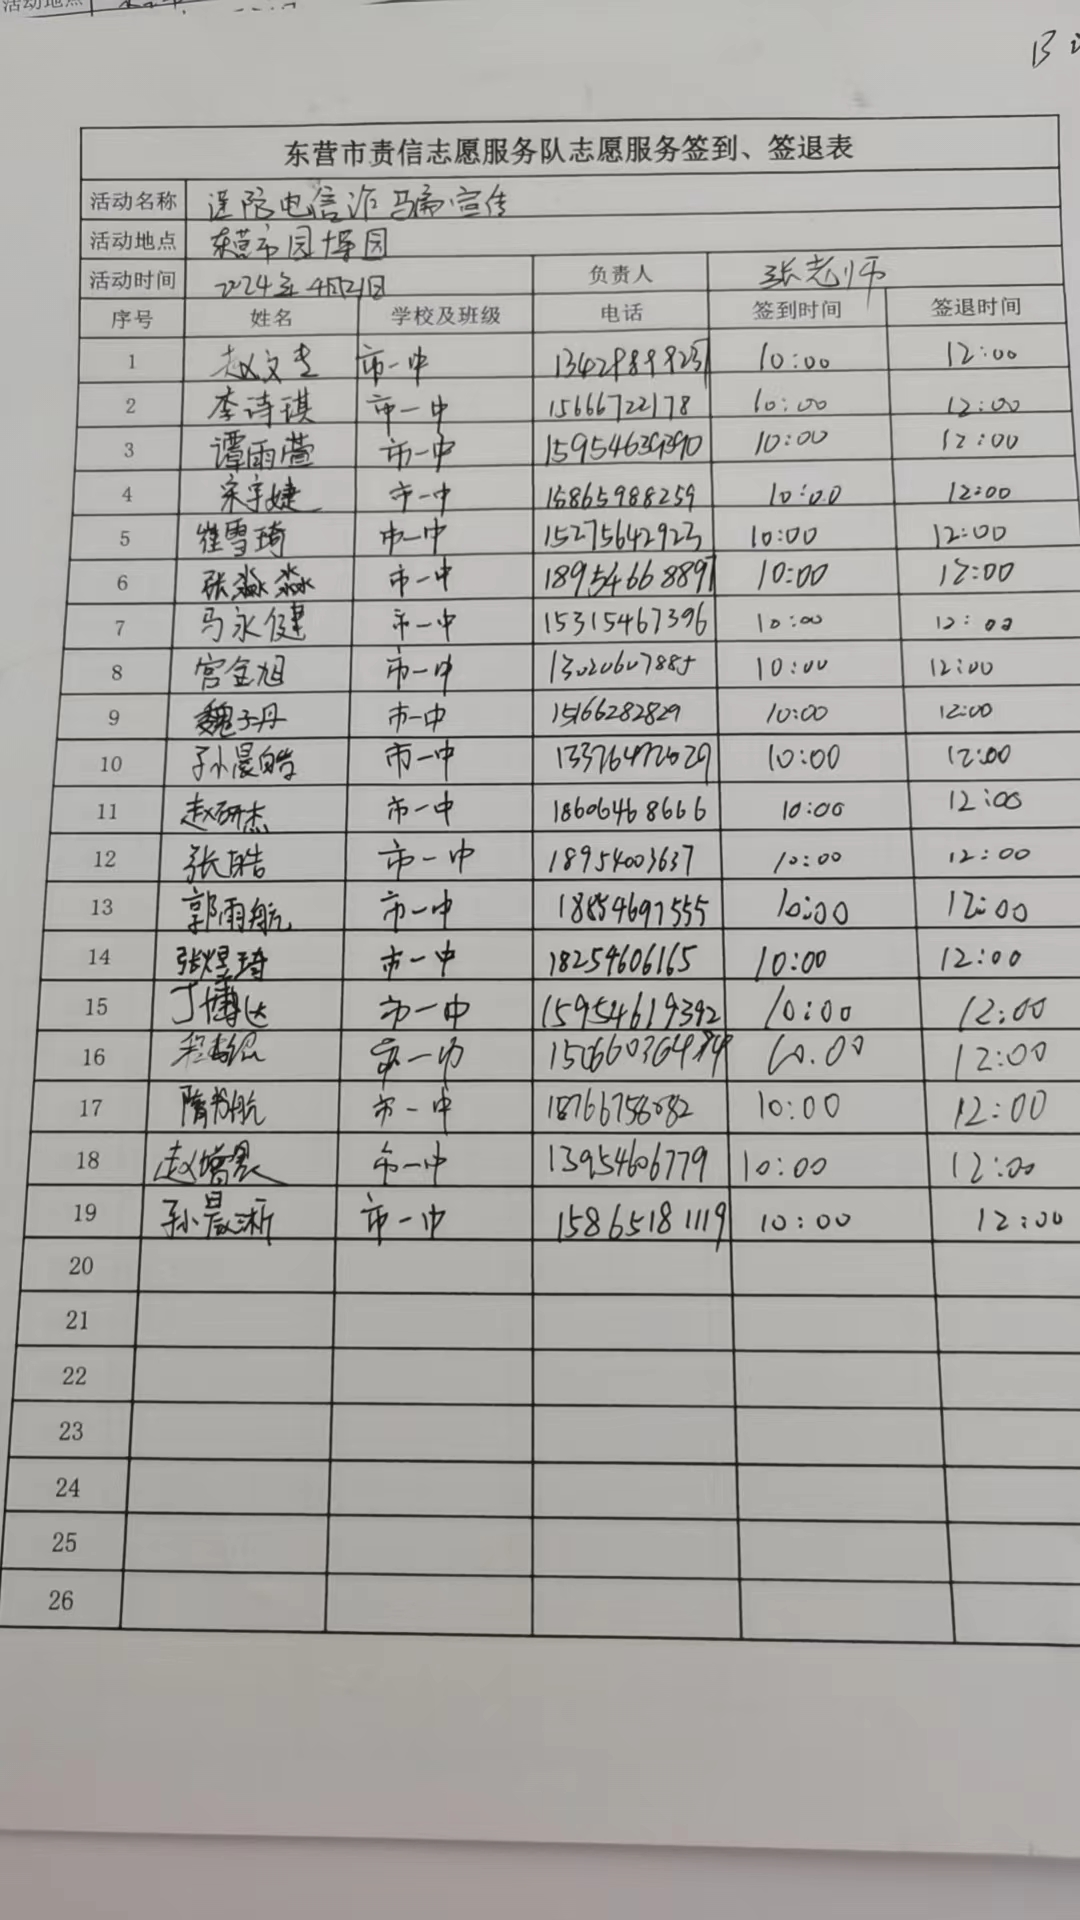 活动地点
东营市责信志愿服务队志愿服务签到、签退表
活动名称 谨防电信诈骗宣传
活动地点 东营市园博园
活动时间 2024年4月21日 负责人 张老师
序号 姓名 学校及班级 电话 签到时间 签退时间
1 赵文 市一中 10:00 12:00
2 李诗琪 市一中 15666722178 10:00 12:00
3 谭雨萱 市一中 15954639390 10:00 12:00
4 宋宇婕 市一中 15865988259 10:00 12:00
5 崔雪琦 市一中 15275642923 10:00 12:00
6 张淼淼 市一中 18954668897 10:00 12:00
7 马永健 市一中 15315467396 10:00 12:00
8 宫金旭 市一中 13020607885 10:00 12:00
9 魏子丹 市一中 15166282829 10:00 12:00
10 孙晨皓 市一中 10:00 12:00
11 赵研杰 市一中 18606468666 10:00 12:00
12 张皓 市一中 18954003637 10:00 12:00
13 郭雨航 市一中 18854697555 10:00 12:00
14 张煜琦 市一中 18254606165 10:00 12:00
15 丁博达 市一中 15954619392 10:00 12:00
16 市一中 10:00 12:00
17 隋航 市一中 18766758082 10:00 12:00
18 赵增晨 市一中 13954606779 10:00 12:00
19 孙晨淅 市一中 15865181119 10:00 12:00
20
21
22
23
24
25
26